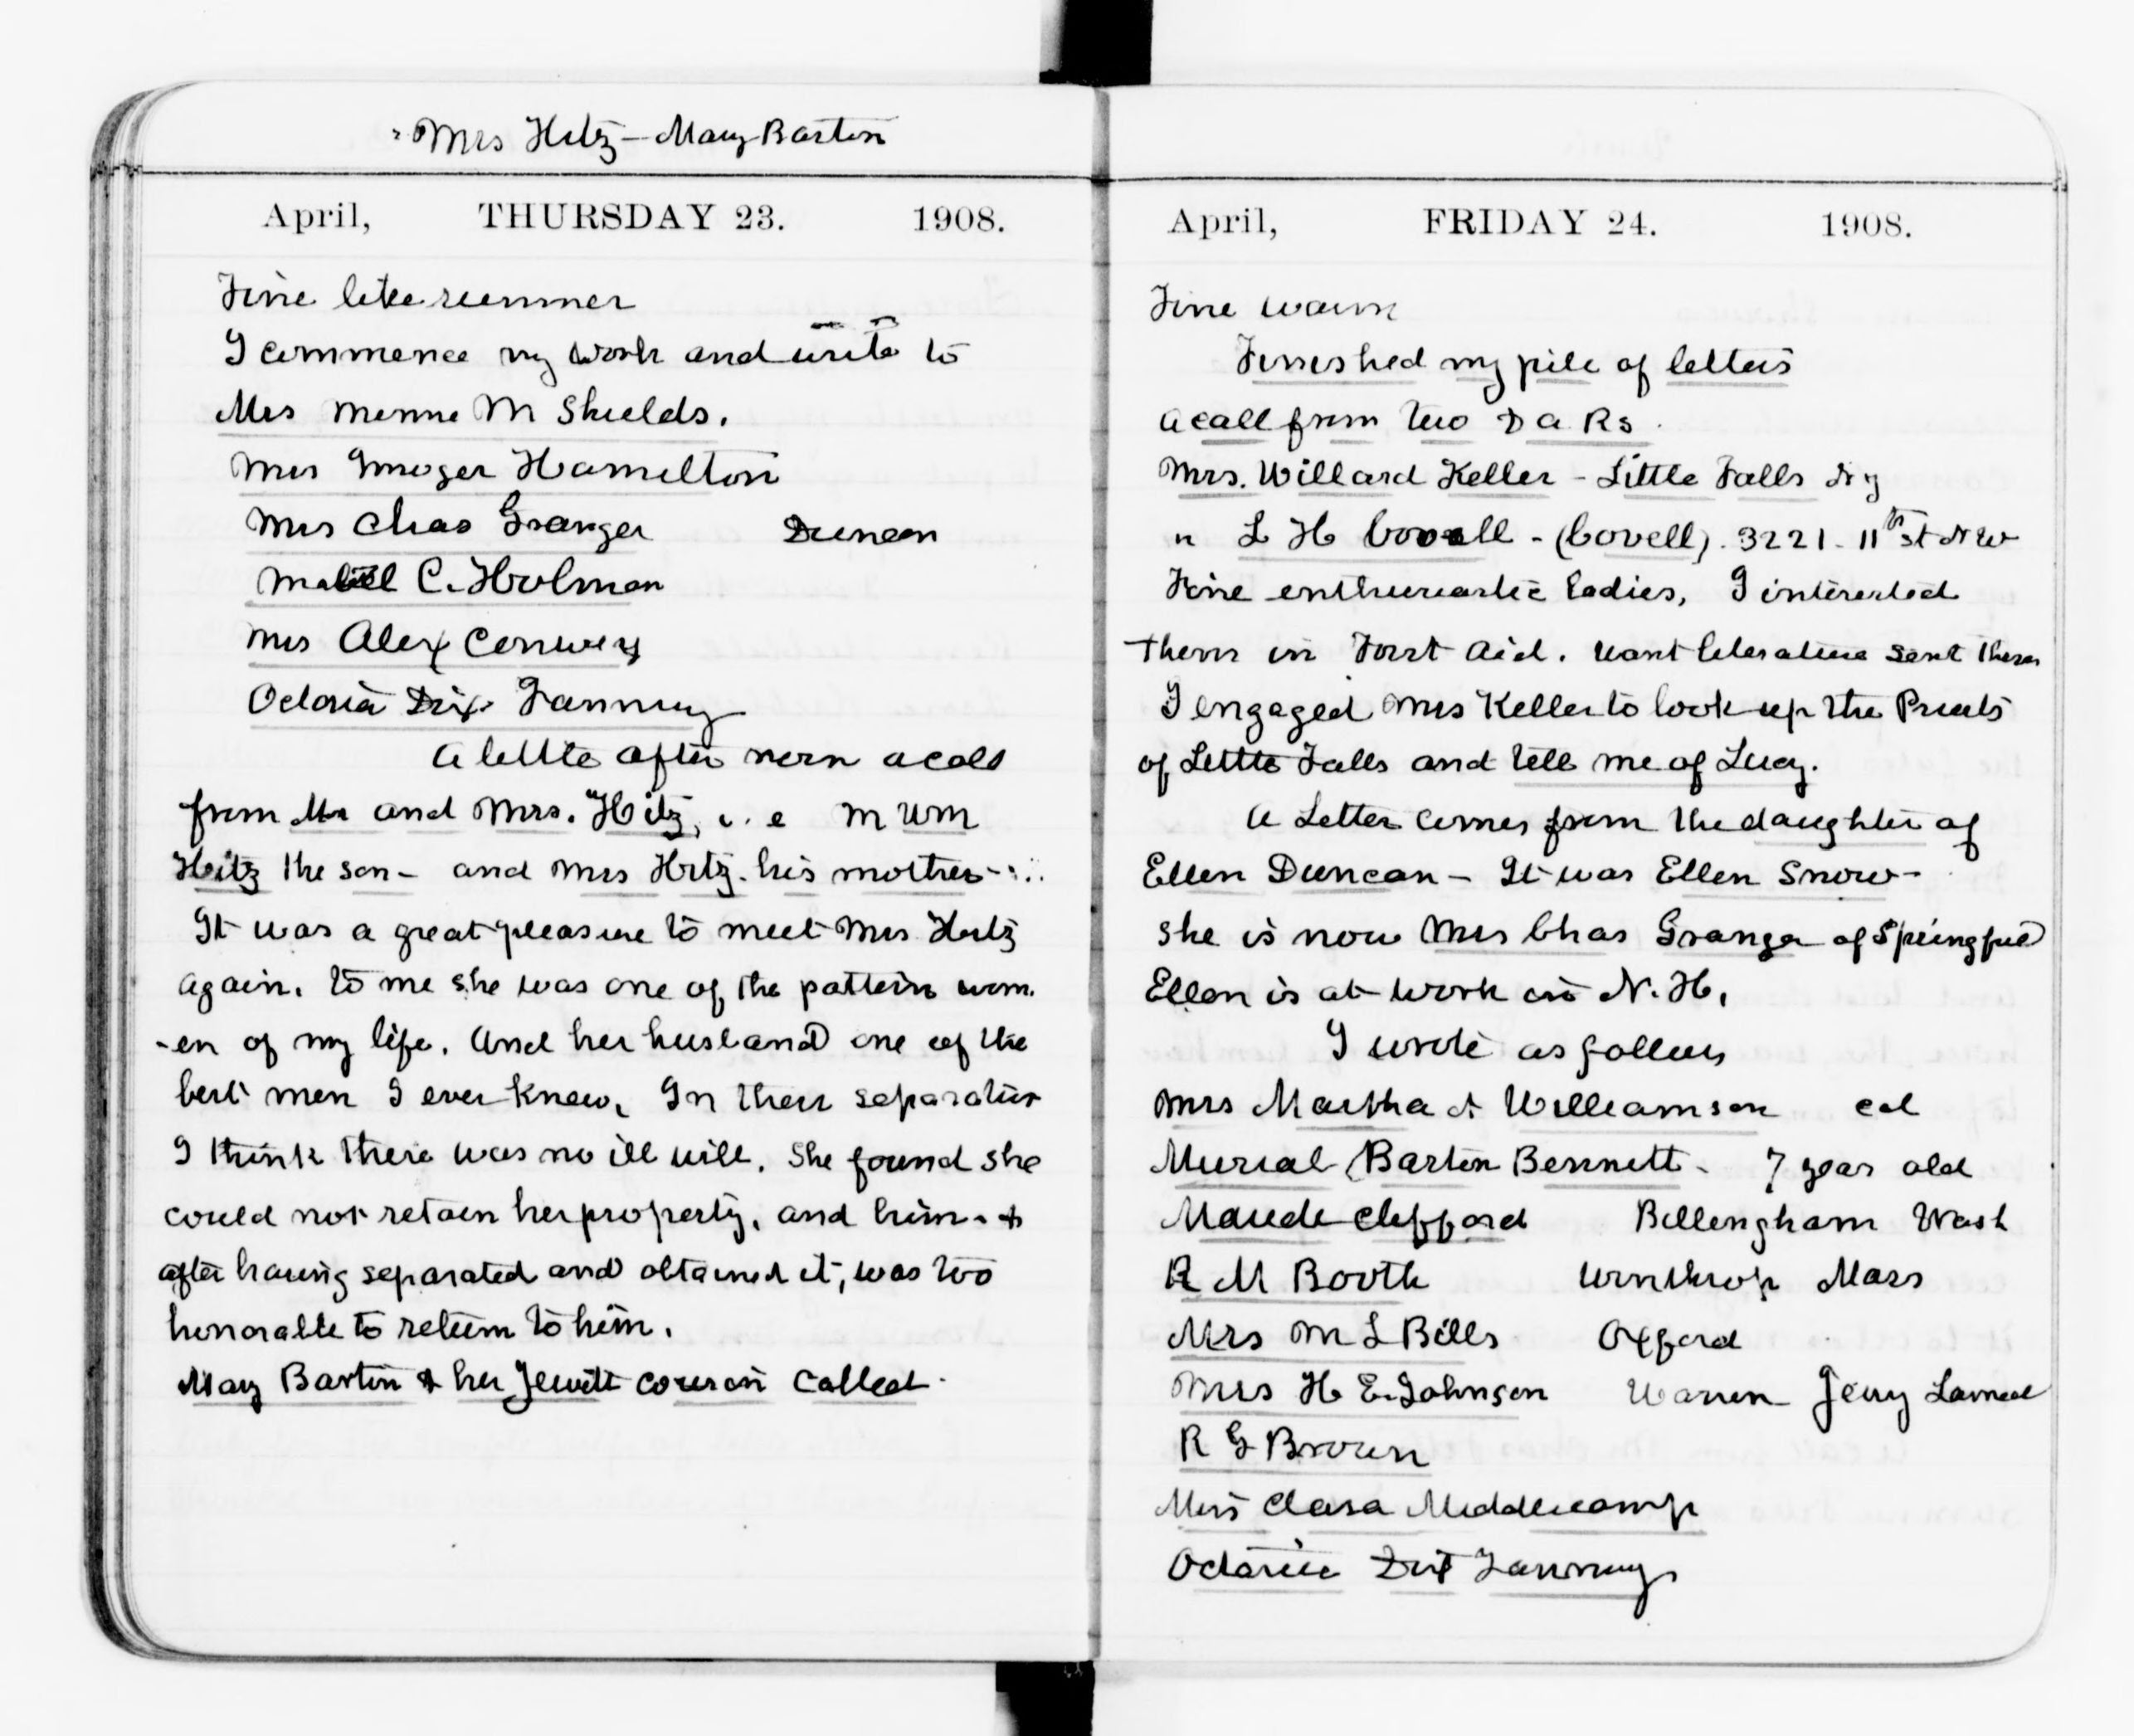 Mrs Hitz - Mary Barton
April, THURSDAY 23. 1908.
Fine like summer
I commence my work and write to
Mrs Minnie M Shields.
Mrs Hamilton
Mrs Chas Granger Duncan
Mabell C. Holman
Mrs Alex Conway
Octavia Dix Fanning
A little after noon a call
from Mr and Mrs. Hitz, i.e M Wm
Hitz the son - and Mrs Hitz. his mother -
It was a great pleasure to meet Mrs Hitz
again. to me she was one of the pattern wom
-en of my life. And her husband one of the
best men I ever knew. In their separation
I think there was no ill will. She found she
could not retain her property, and him - &
after having separated and obtained it, was too
honorable to return to him.
Mary Barton & her Jewett cousin called.
April, FRIDAY 24. 1908.
Fine warm
Finished my pile of letters
a call from two D A Rs.
Mrs. Willard Keller - Little Falls N y
" L H Covell - (Covell). 3221. 11th St N W
Fine enthusiastic ladies, I interested
them in First Aid. want literature sent them
I engaged Mrs Keller to look up the
of Little Falls and tell me of Lucy.
A Letter comes from the daughter of
Ellen Duncan - It was Ellen Snow -
she is now Mrs Chas Granger of Springfield
Ellen is at work in N. H.
I wrote as follows
Mrs Martha A Williamson col
Murial Barton Bennett - 7 year old
Maude Clifford Bellengham Wash
R M Booth Winthrop Mass
Mrs M L Bills Oxford
Mrs H E. Johnson Warren Jerry Larned
R G Brown
Miss Clara Middlecamp
Octavia Dix Fanning